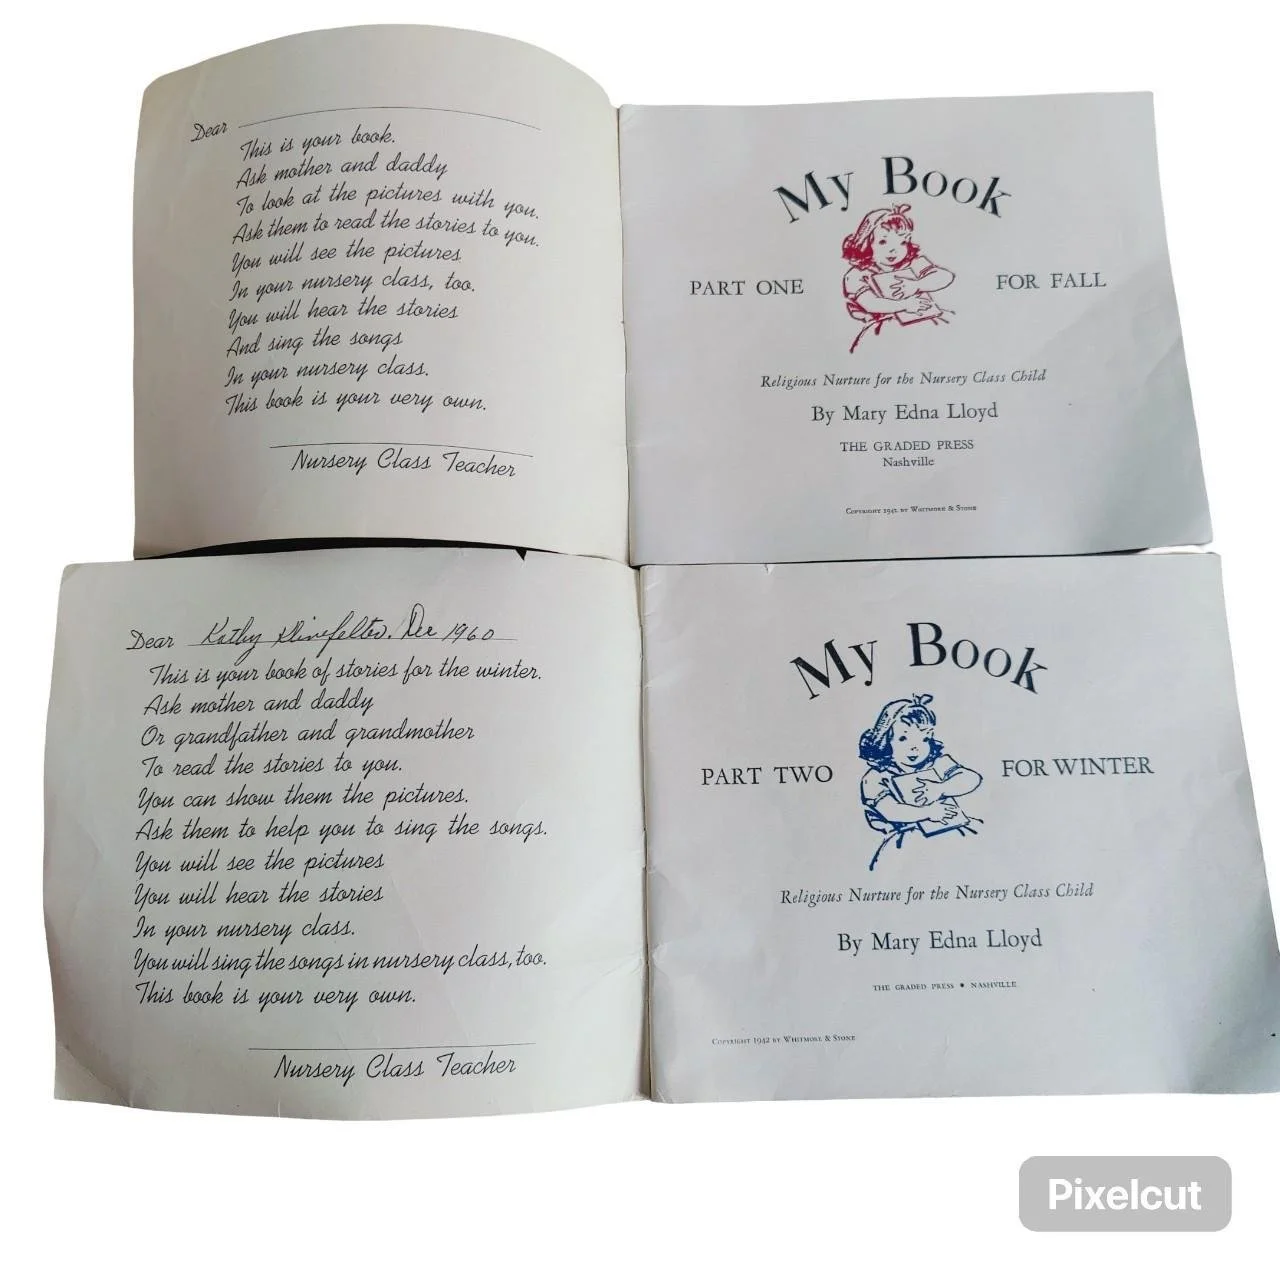 Dear
This is your book.
Ask mother and daddy
To look at the pictures with you.
Ask them to read the stories to you.
You will see the pictures
In your nursery class, too.
You will hear the stories
And sing the songs
In your nursery class.
This book is your very own.
Nursery Class Teacher
My Book
PART ONE FOR FALL
Religious Nurture for the Nursery Class Child
By Mary Edna Lloyd
THE GRADED PRESS
Nashville
Copyright 1942 by Whitmore & Stone
Dear Kathy Klinefelter. Dec 1960
This is your book of stories for the winter.
Ask mother and daddy
Or grandfather and grandmother
To read the stories to you.
You can show them the pictures.
Ask them to help you to sing the songs.
You will see the pictures
You will hear the stories
In your nursery class.
You will sing the songs in nursery class, too.
This book is your very own.
Nursery Class Teacher
My Book
PART TWO FOR WINTER
Religious Nurture for the Nursery Class Child
By Mary Edna Lloyd
THE GRADED PRESS • NASHVILLE
Copyright 1942 by Whitmore & Stone
Pixelcut